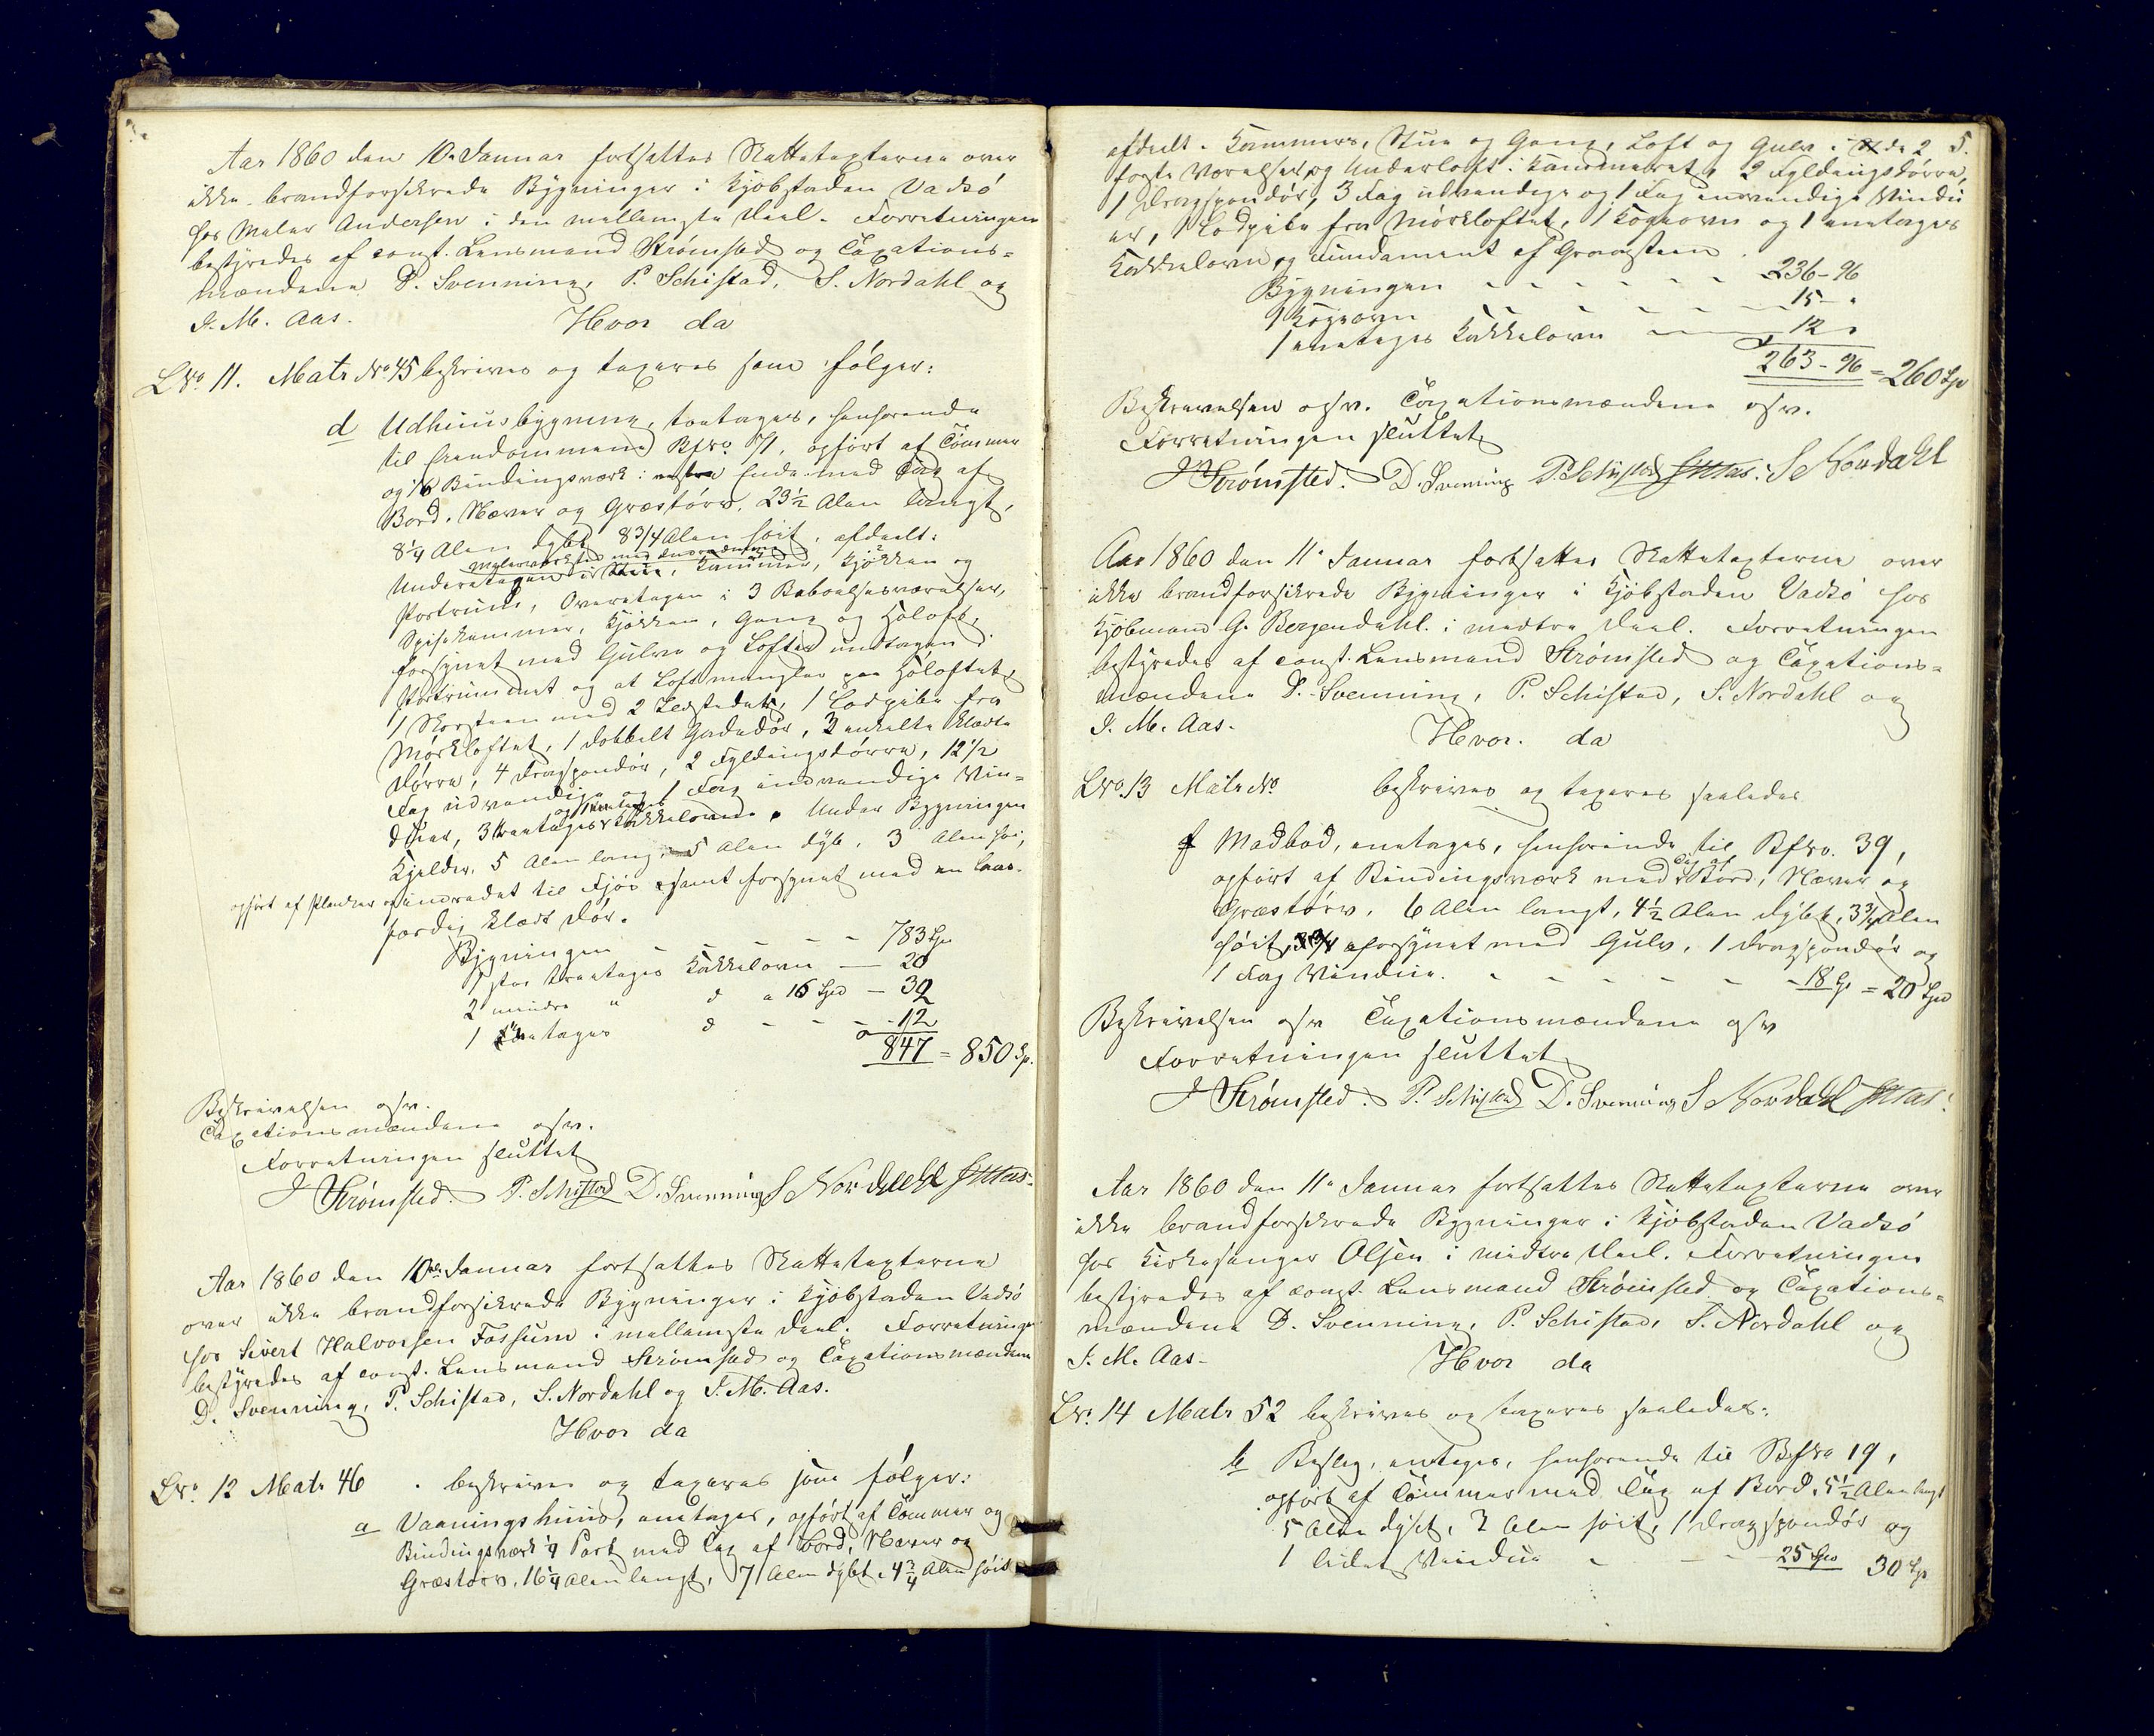 Aar 1860 den 10. Januar fortsattes Skattetaxterne over
ikke brandforsikrede Bygninger i Kjøbstaden Vadsø
hos Maler Andersen i den mellemste Deel. Forretningen
bestyredes af const. Lensmand Strømsted og Taxations-
mændene D. Svenning, P. Schistad, S. Nordahl og
J. M. Aas.
Hvor da
LNo. 11. Matr No. 45 beskrives og taxeres som følger:
d Udhuusbygning, toetages, henhørende
til Eiendommens Bfno. 51, opført af Tømmer
og Bindingsværk i Ende med Tag af
Bord, Næver og Græstørv, 23½ Alen langt,
8¼ Alen dybt, 8 3/4 Alen høit, afdeelt:
Malerværksted med
Underetagen i Stue, Kammer, Kjøkken og
Portrum, Overetagen i 3 Beboelsesværelser,
Spisekammer, Kjøkken, Gang og Høloft,
forsynet med Gulve og Lofter undtagen i
Portrummet og at Loft mangler paa Høloftet,
1 Skorsteen med 2 Ildsteder, 1 Lodpibe fra
Mørkloftet, 1 dobbelt Gadedør, 3 enkelte klædte
Dørre, 4 Dragspondør, 2 Fyldingsdørre, 12½
Fag udvendige og 1 Fag indvendige Vin-
og 1 enetages
duer, 3 treetages Kakkelovne. Under Bygningen
Kjelder, 5 Alen lang, 5 Alen dyb, 3 Alen høi,
opført af Planker og indredet til Fjøs samt forsynet med en laas-
færdig klædt Dør.
Bygningen - - - - 783 Sp
1 stor treetages Kakkelovn — 20
2 mindre " d a 16 Spd — 32
1 enetages d - - - 12
847 = 850 Sp.
Beskrivelsen osv.
Taxationsmændene osv.
Forretningen sluttet
J Strømsted. P. Schistad D. Svenning S Nordahl JMAas.
Aar 1860 den 10de Januar fortsattes Skattetaxterne
over ikke brandforsikrede Bygninger i Kjøbstaden Vadsø
hos Sivert Halvorsen Fossum i mellemste Deel. Forretningen
bestyredes af const. Lensmand Strømsted og Taxationsmændene
D. Svenning, P. Schistad, S. Nordahl og J. M. Aas.
Hvor da
LNo. 12 Matr 46 . beskrives og taxeres som følger:
a Vaaningshuus, enetages, opført af Tømmer og
Bindingsværk ¼ Part med Tag af Bord, Næver og
Græstørv, 16¼ Alen langt, 7 Alen dybt, 4¾ Alen høit
5.
afdeelt i Kammers, Stue og Gang, Loft og Gulv i de 2
første Værelser og Underloft i Kammeret, 2 Fyldingsdørre,
1 Dragspondør, 3 Fag udvendige og 1 Fag indvendige Vindu
er, 1 Lodpibe fra Mørkloftet, 1 Kogeovn og 1 enetages
Kakkelovn og Fundament af Graasteen.
Bygningen - - - - - 236-96
1 Kogeovn - - - - - 15-"
1 enetages Kakkelovn — — 12 "
263-96 = 260 Sp
Beskrivelsen osv. Taxationsmændene osv.
Forretningen sluttet
J Strømsted. D. Svenning P. Schistad JMAas. S Nordahl
Aar 1860 den 11. Januar fortsattes Skattetaxterne over
ikke brandforsikrede Bygninger i Kjøbstaden Vadsø hos
Kjøbmand G. Bergendahl i midtre Deel. Forretningen
bestyredes af const. Lensmand Strømsted og Taxations-
mændene D. Svenning, P. Schistad, S. Nordahl og
J. M. Aas.
Hvor. da
LNo. 13 Matr No beskrives og taxeres saaledes
f Madbod, enetages, henhørende til Bfno. 39,
Tag af
opført af Bindingsværk med Bord, Næver og
Græstørv, 6 Alen langt, 4½ Alen dybt, 3¾ Alen
høit, forsynet med Gulv, 1 Dragspondør og
1 Fag Vindue. - - - - - 18 Sp = 20 Spd
Beskrivelsen osv Taxationsmændene osv
Forretningen sluttet
J Strømsted. P. Schistad D. Svenning S Nordahl JMAas.
Aar 1860 den 11. Januar fortsattes Skattetaxterne over
ikke brandforsikrede Bygninger i Kjøbstaden Vadsø
hos Kirkesanger Olsen i midtre Deel. Forretningen
bestyredes af const. Lensmand Strømsted og Taxations-
mændene D. Svenning, P. Schistad, S. Nordahl og
J. M. Aas.
Hvor da
LNo. 14 Matr 52 beskrives og taxeres saaledes:
b Beslag, enetages, henhørende til Bfno 19,
opført af Tømmer med Tag af Bord, 5½ Alen langt
5 Alen dybt, 3 Alen høit, 1 Dragspondør og
1 lidet Vindue - - - 25 Spd 30 Sp